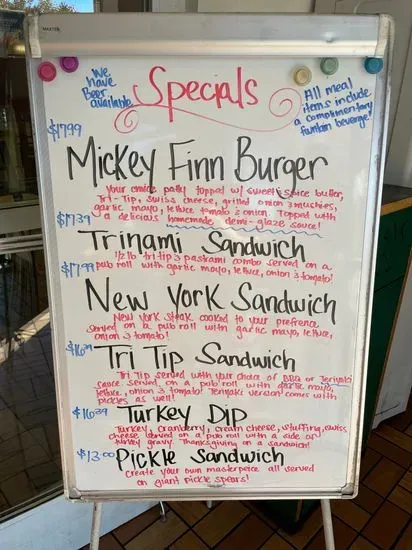 MASTER
We
have
Beer
available
Specials
All meal
items include
a complimentary
funtain beverge!
$17.99
Mickey Finn Burger
Your choice patty topped w/ sweet & spice butter,
Tri-Tip, swiss cheese, grilled onion & mushies,
garlic mayo, lettuce tomato & onion. Topped with
a delicious homemade demi-glaze sauce!
$17.39
Trinami Sandwich
1/2 lb tri tip & pastrami combo served on a
pub roll with garlic mayo, lettuce, onion & tomato!
$17.99
New York Sandwich
New York steak cooked to your prefrence,
served on a pub roll with garlic mayo, lettuce,
onion & tomato!
$16.29
Tri Tip Sandwich
Tri Tip served with your choice of BBQ or Teriyaki
sauce served on a pub roll with garlic mayo,
lettuce, onion & tomato! Teriyaki version comes with
pickles as well!
$16.29
Turkey Dip
Turkey, cranberry, cream cheese, stuffing, swiss
cheese served on a pub roll with a side of
turkey gravy. Thanksgiving on a sandwich!
$13.00
Pickle Sandwich
Create your own masterpiece all served
on giant pickle spears!